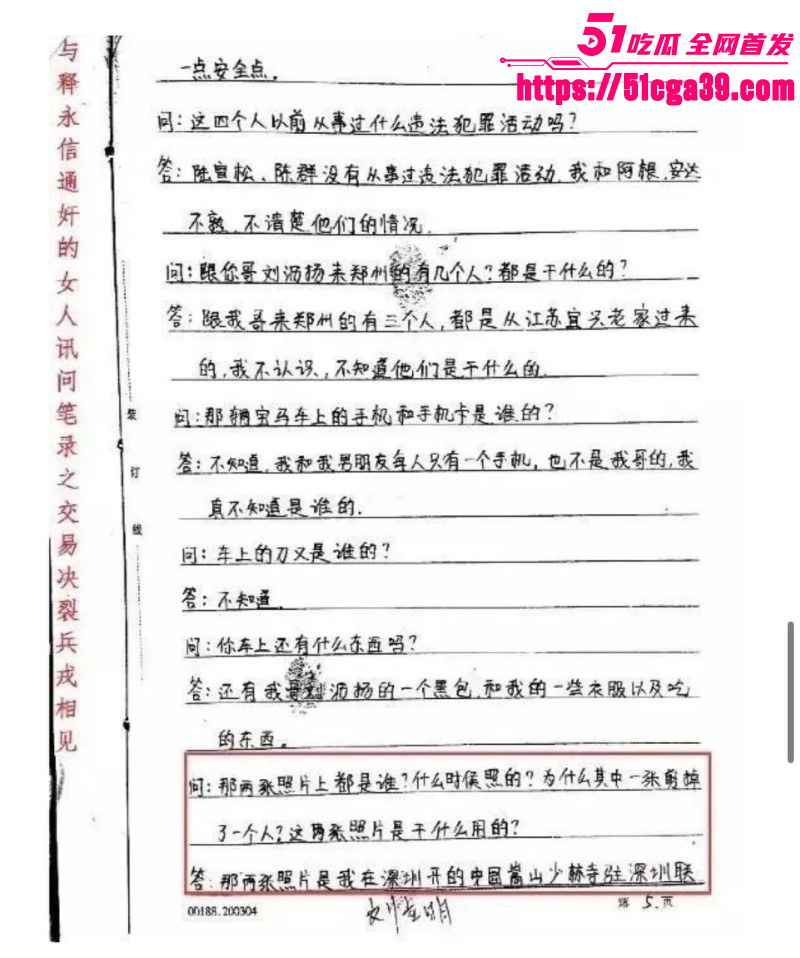 51吃瓜 全网首发
https://51cga39.com
与释永信通奸的女人讯问笔录之交易决裂兵戎相见
一点安全点。
问：这四个人以前从事过什么违法犯罪活动吗？
答：陆宣松、陈群没有从事过违法犯罪活动，我和阿根、安达
不熟，不清楚他们的情况。
问：跟你哥刘沥扬来郑州的有几个人？都是干什么的？
答：跟我哥来郑州的有三个人，都是从江苏宜兴老家过来
的，我不认识，不知道他们是干什么的。
问：那辆宝马车上的手机和手机卡是谁的？
答：不知道，我和我男朋友每人只有一个手机，也不是我哥的，我
真不知道是谁的.
问：车上的刀又是谁的？
答：不知道.
问：你车上还有什么东西吗？
答：还有我哥刘沥扬的一个黑包，和我的一些衣服以及吃
的东西。
问：那两张照片上都是谁？什么时候照的？为什么其中一张剪掉
了一个人？这两张照片是干什么用的？
答：那两张照片是我在深圳开的中国嵩山少林寺驻深圳联
装
订
线
00188.200304
第 5 页